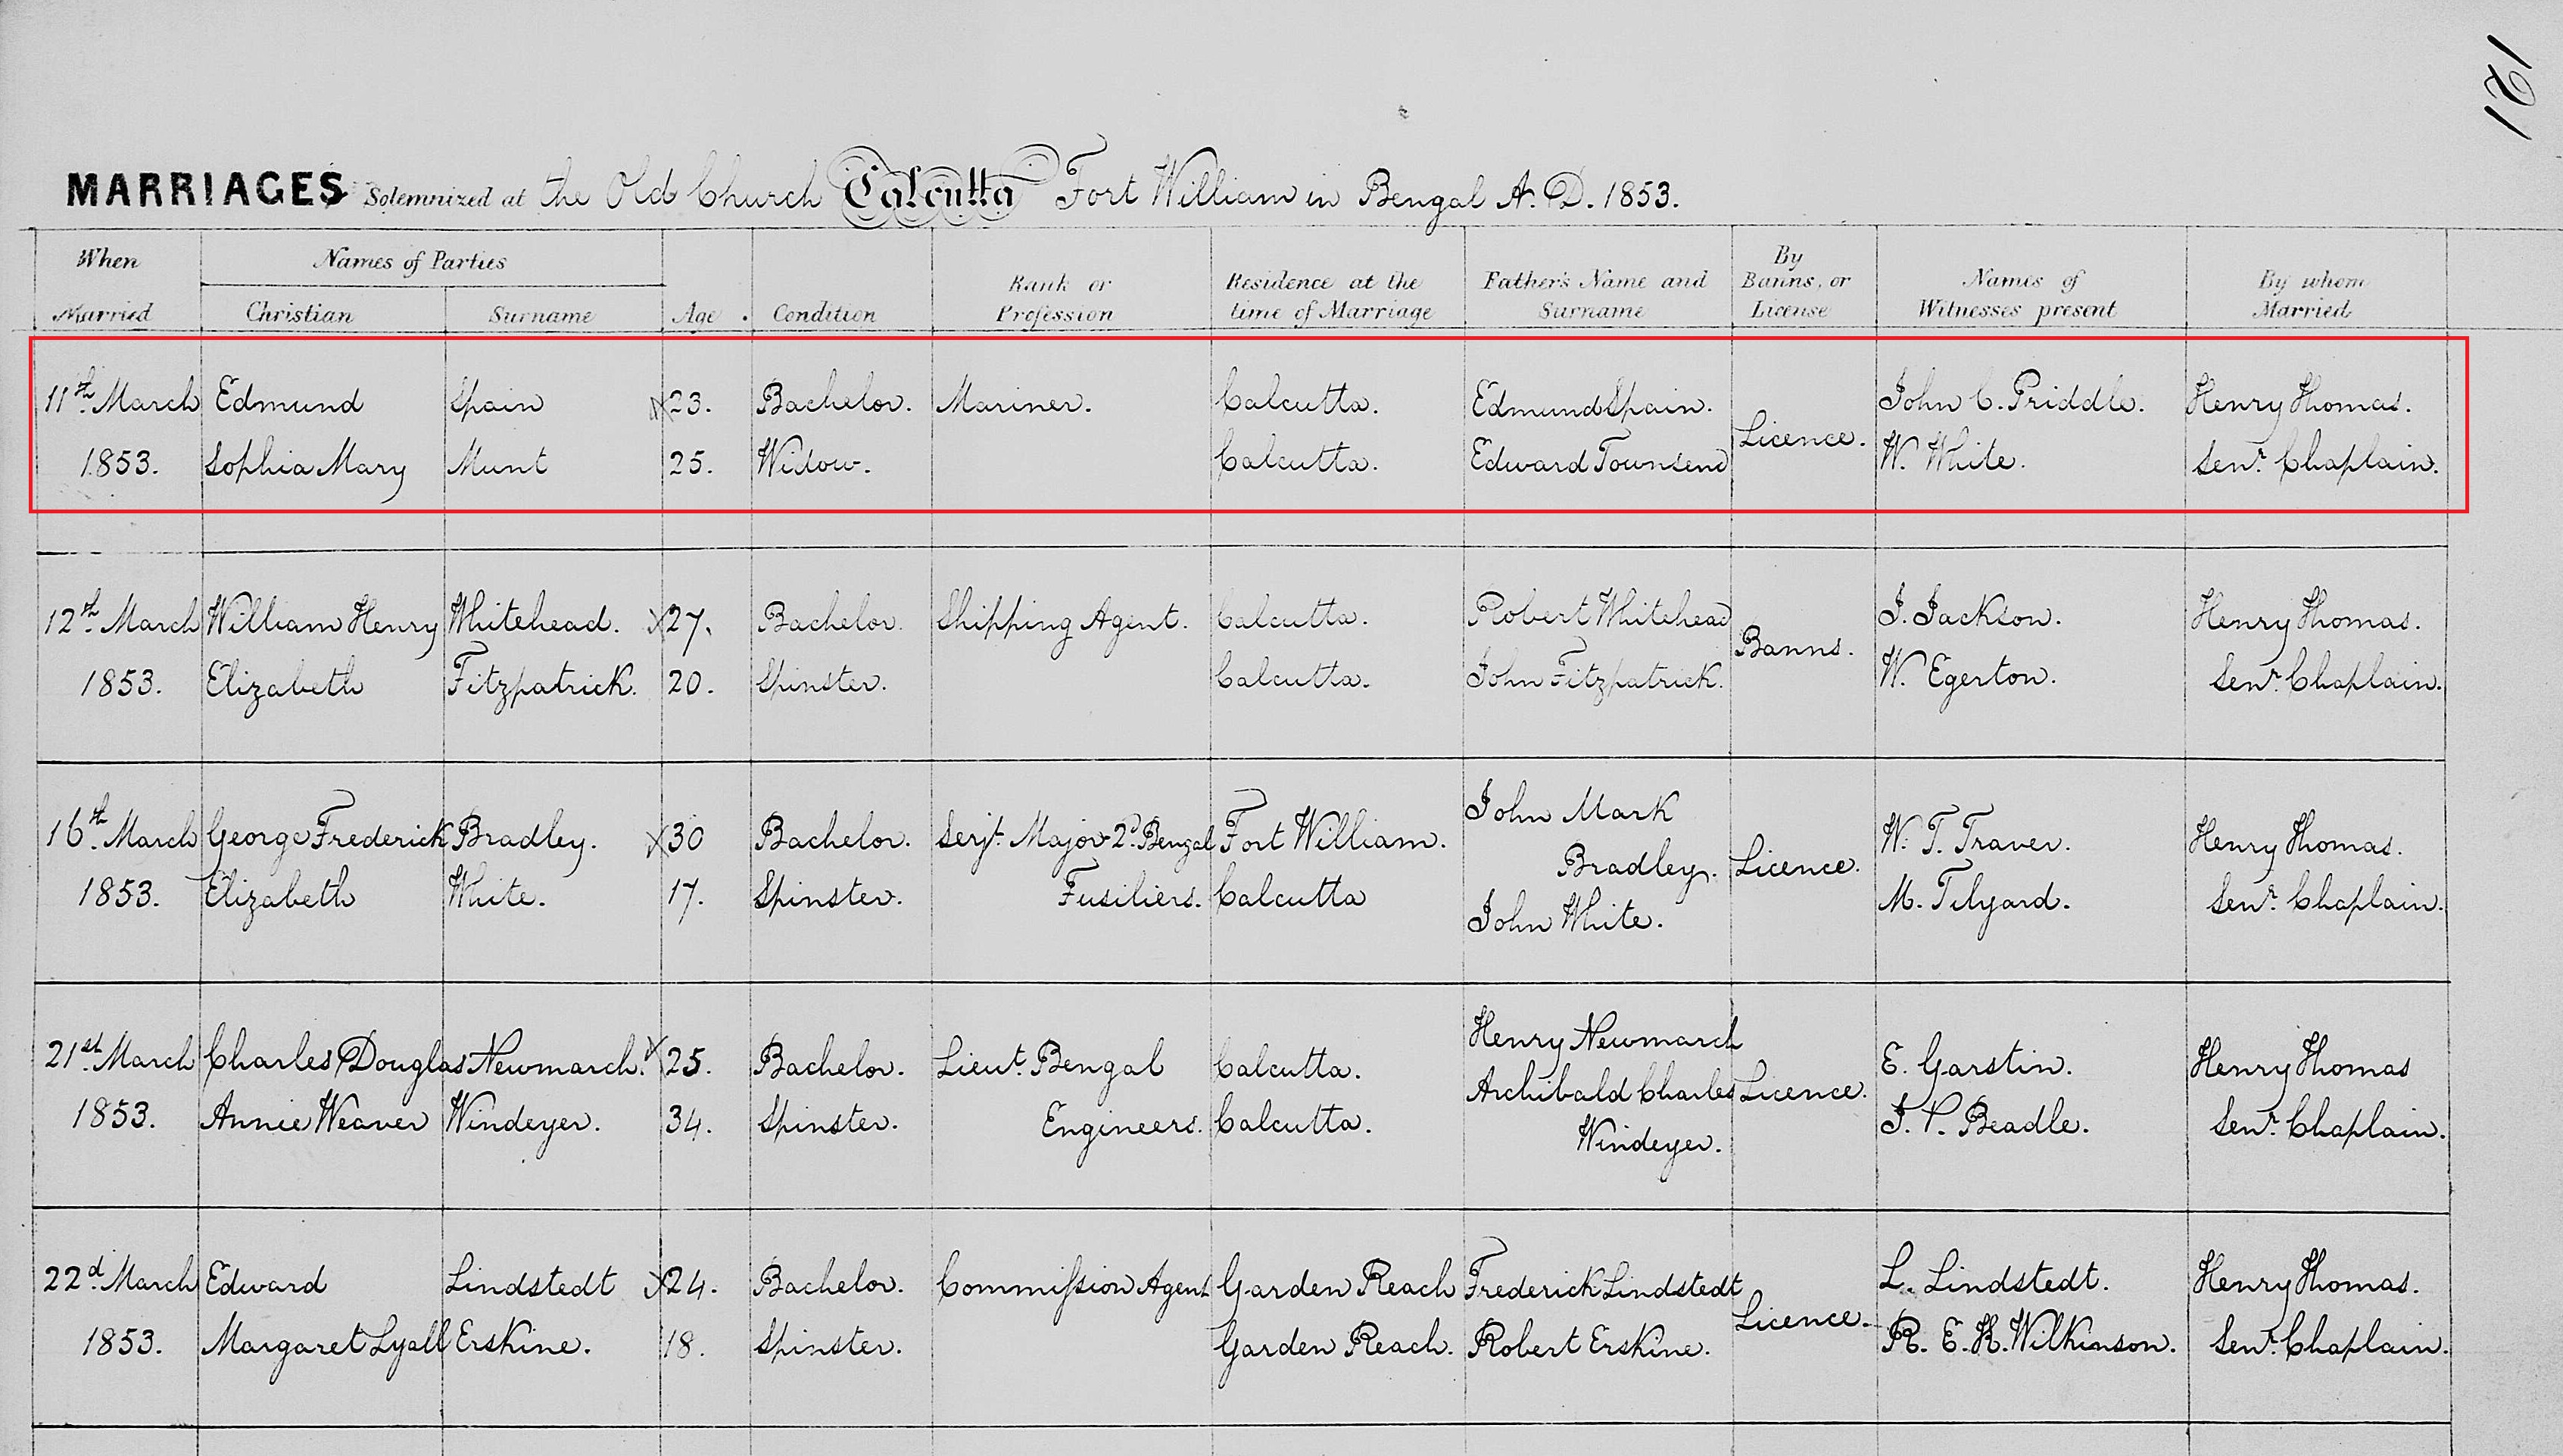 121
MARRIAGES Solemnized at the Old Church Calcutta Fort William in Bengal A.D. 1853.
When Married | Names of Parties | Christian | Surname | Age . | Condition | Rank or Profession | Residence at the time of Marriage | Father's Name and Surname | By Banns, or License | Names of Witnesses present | By whom Married
11th March Edmund Spain 23. Bachelor. Mariner. Calcutta. Edmund Spain. Licence. John C. Priddle. Henry Thomas.
1853. Sophia Mary Munt 25. Widow. Calcutta. Edward Townsend W. White. Senr. Chaplain.
12th March William Henry Whitehead. 27. Bachelor. Shipping Agent. Calcutta. Robert Whitehead Banns. J. Jackson. Henry Thomas.
1853. Elizabeth Fitzpatrick. 20. Spinster. Calcutta. John Fitzpatrick. W. Egerton. Senr. Chaplain.
16th March George Frederick Bradley. 30 Bachelor. Serjt. Major 2d. Bengal Fort William. John Mark Bradley. Licence. W. T. Traver. Henry Thomas.
1853. Elizabeth White. 17. Spinster. Fusiliers. Calcutta John White. M. Tilyard. Senr. Chaplain.
21st March Charles Douglas Newmarch. 25. Bachelor. Lieut. Bengal Calcutta. Henry Newmarch Licence. E. Garstin. Henry Thomas
1853. Annie Weaver Windeyer. 34. Spinster. Engineers. Calcutta. Archibald Charles Windeyer. J. P. Beadle. Senr. Chaplain.
22d March Edward Lindstedt 24. Bachelor. Commission Agent Garden Reach Frederick Lindstedt Licence. L. Lindstedt. Henry Thomas.
1853. Margaret Lyall Erskine. 18. Spinster. Garden Reach. Robert Erskine. R. E. H. Wilkinson. Senr. Chaplain.